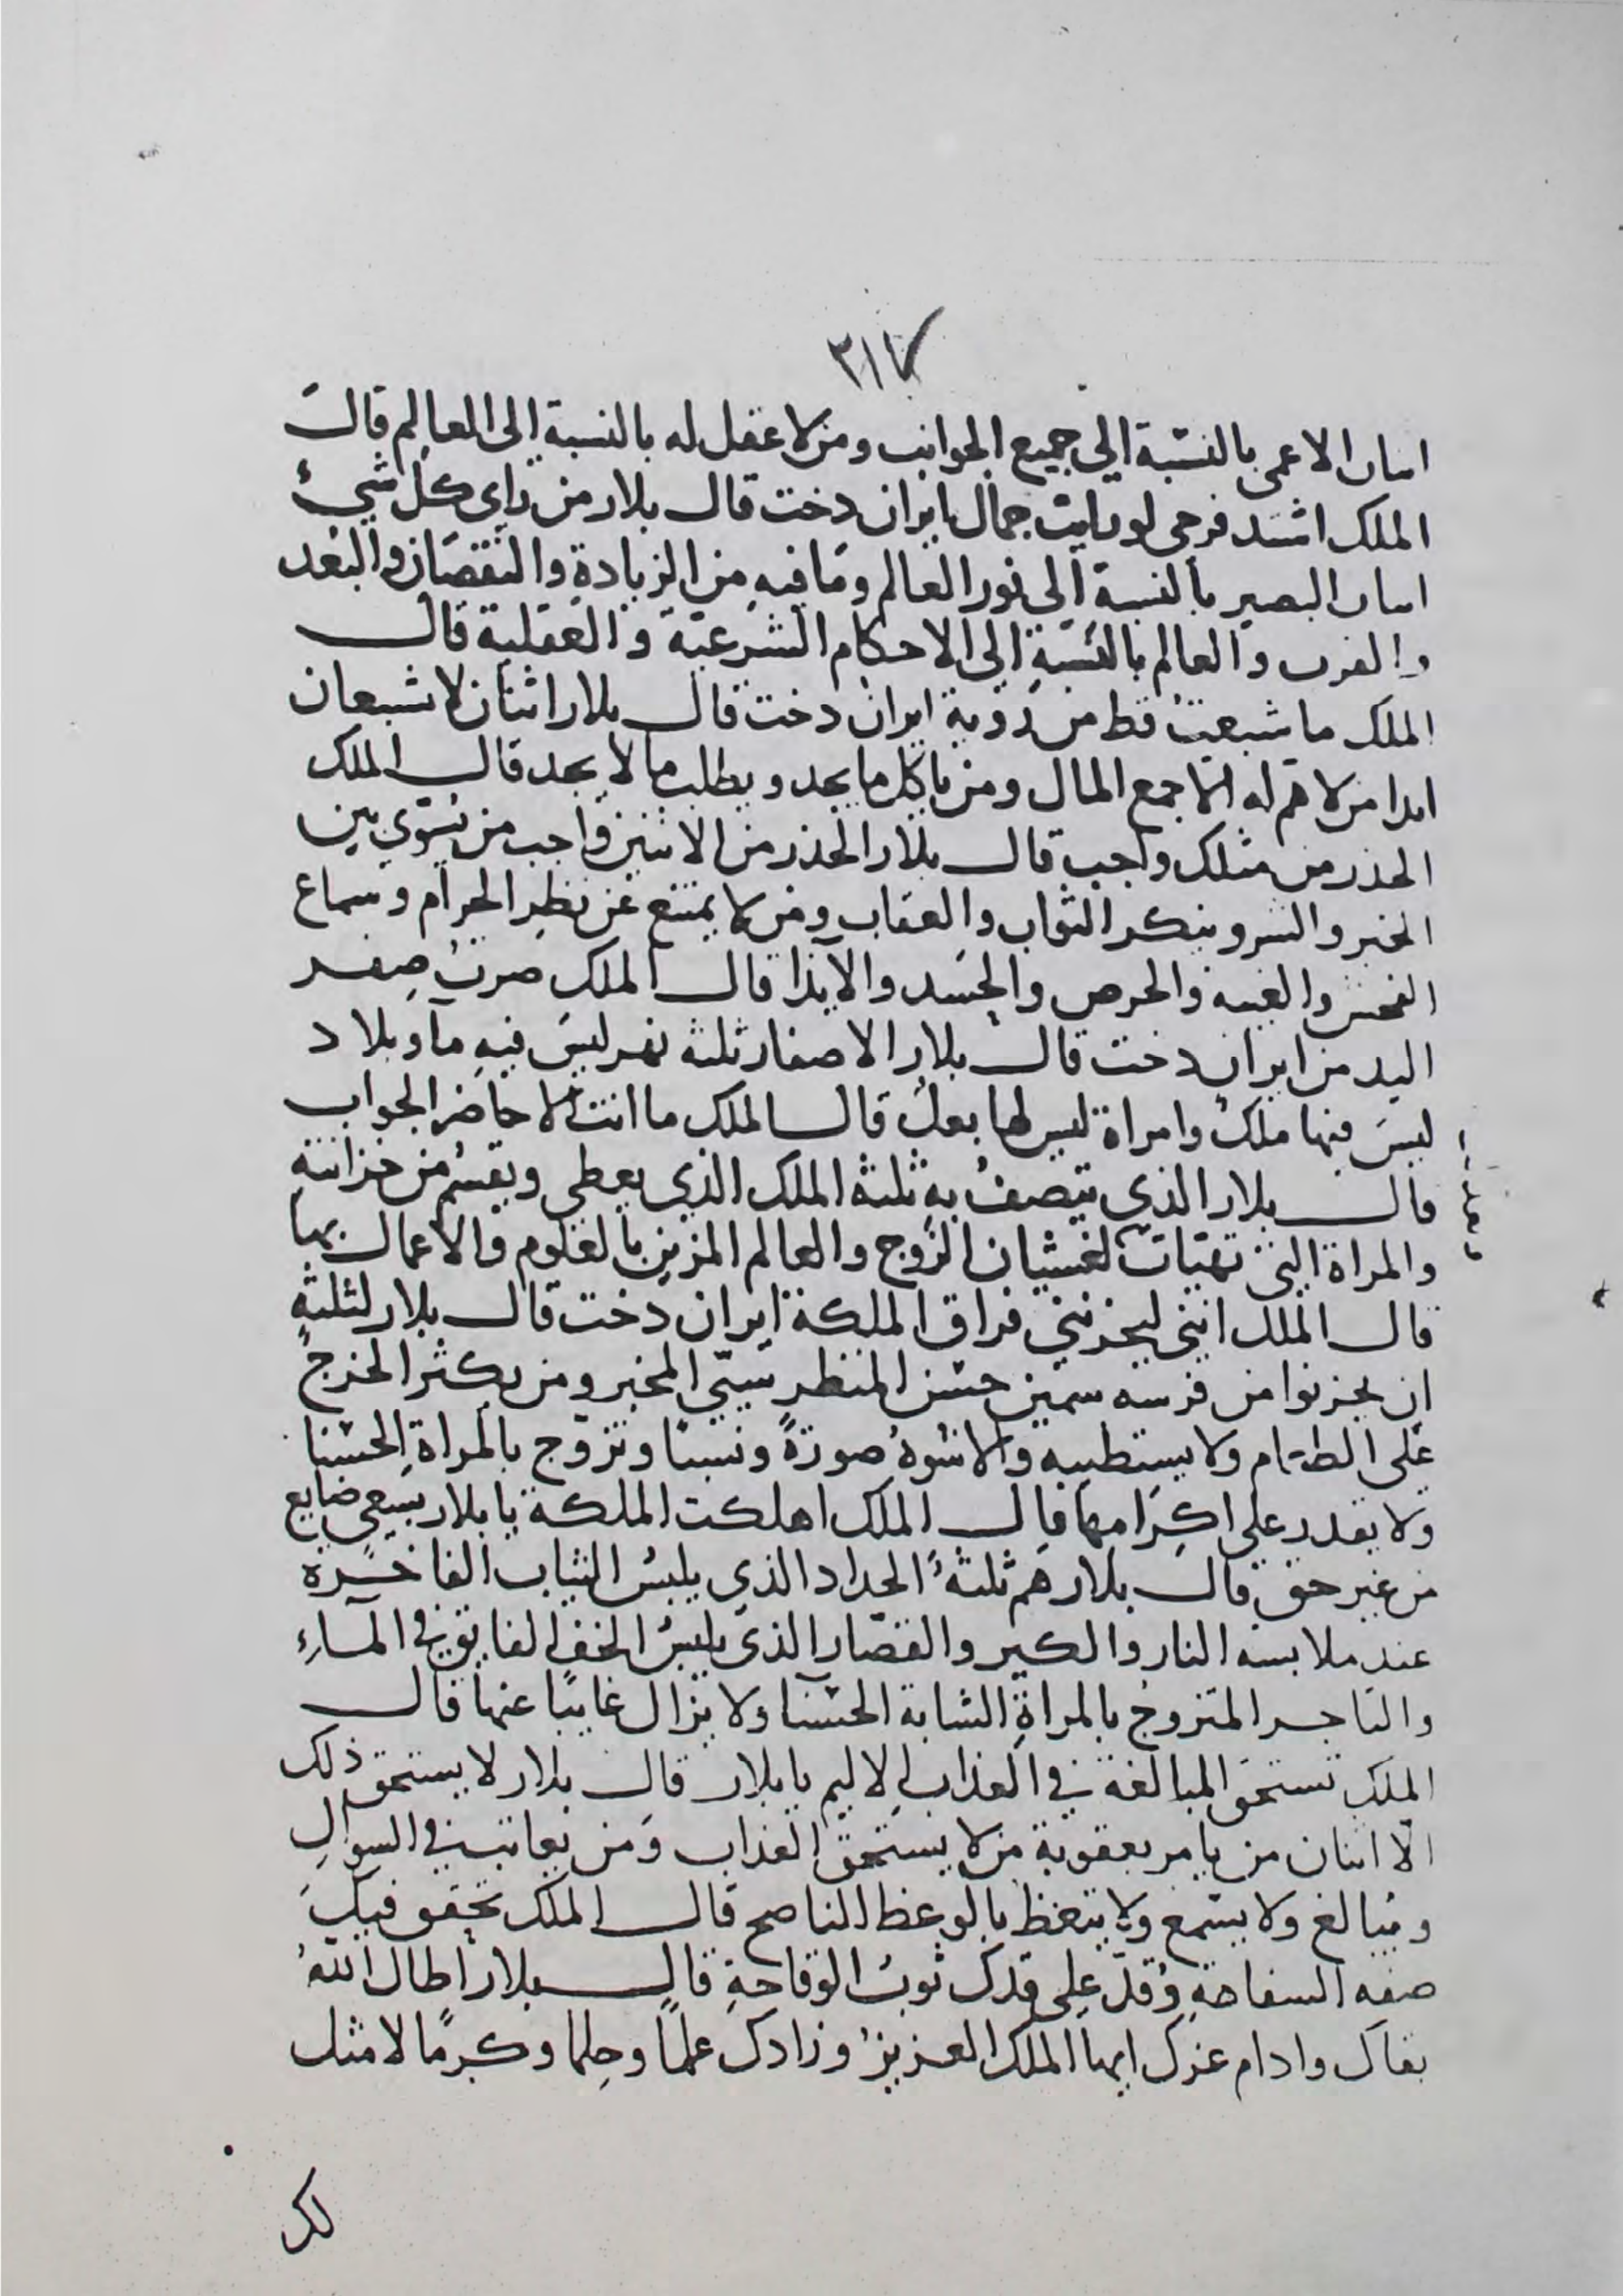 ٢١٧
اسان الاعمى بالنسبة الى جميع الجوانب ومن لا عقل له بالنسبة الى العالم قال
الملك اشتد فرحى لو رايت جمال ايران دخت قال بلار من راى كل شيء
اسان البصير بالنسبة الى نور العالم وما فيه من الزيادة والنقصان والبعد
والقرب والعالم بالنسبة الى الاحكام الشرعية والعقلية قال
الملك ما شبعت قط من روية ايران دخت قال بلار اثنان لا شبعان
ابدا من لا هم له الا جمع المال ومن ياكل ما يجد ويطلب ما لا يجد قال الملك
الحذر من مثلك واجب قال بلار الحذر من الاثنين واجب من يسوى بين
الخير والشر وينكر الثواب والعقاب ومن لا يمتنع عن نظر الحرام وسماع
الفحش والغيبة والحرص والحسد والايذا قال الملك صرت صفر
اليد من ايران دخت قال بلار الاصفار ثلثة نهر ليس فيه مآ وبلاد
ليس فيها ملك وامراة ليس لها بعل قال الملك ما انت الا حاضر الجواب
قال بلار الذى يتصف به ثلثة الملك الذى يعطى ويقسم من خزانته
والمراة التى تهيات لغشيان الزوج والعالم المزين بالعلوم والاعمال بها
قال الملك اننى ليحزننى فراق الملكة ايران دخت قال بلار لثلثة
ان يحزنوا من فرسه سمين حسن المنظر سيّى المخبر ومن يكثر الخرج
على الطعام ولا يستطيبه والاشوه صورةً ونسبًا وتزوج بالمراة الحسنا
ولا يقدر على اكرامها قال الملك اهلكت الملكة يا بلار بسعى ضايع
من غير حق قال بلار هم ثلثة الحداد الذى يلبس الثياب الفاخرة
عند ملابسة النار والكير والقصّار الذى يلبس الخف الفايق فى المآء
والتاجر المتزوج بالمراة الشابة الحسنا ولا يزال غايبًا عنها قال
الملك تستحق المبالغة فى العذاب الاليم يا بلار قال بلار لا يستحق ذلك
الّا اثنان من يامر بعقوبة من لا يستحق العذاب ومن يعاتب فى السوال
ويبالغ ولا يسمع ولا يتعظ بالوعظ الناصح قال الملك تحقق فيك
صفة السفاهة وقدّ على قدك ثوب الوقاحة قال بلار اطال الله
بقاك وادام عزك ايها الملك العزيز وزادك علمًا وحلما وكرمًا لا مثل
لك